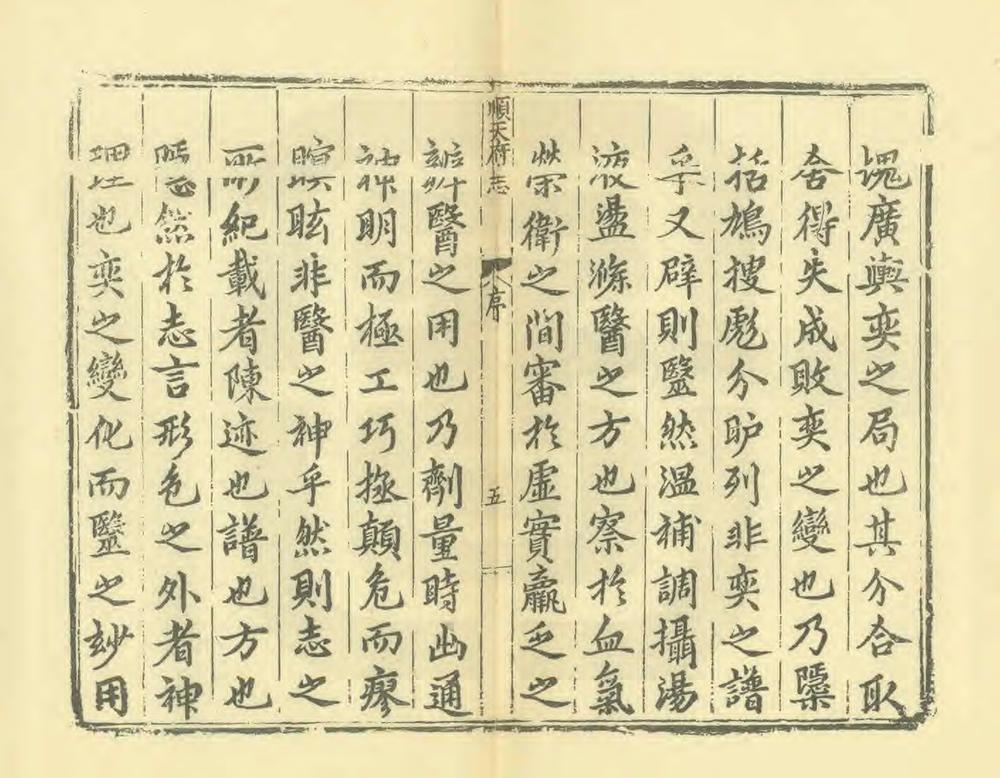 塊廣輿奕之局也其分合取
舍得失成敗奕之變也乃隱
括鳩搜彪分眕列非奕之譜
乎又辟則毉然溫補調攝湯
液盪滌醫之方也察於血氣
榮衛之間審於虛實羸乏之
順天府志
序
五
辨醫之用也乃劑量時幽通
神明而極工巧拯顛危而瘳
瞑眩非醫之神乎然則志之
所紀載者陳迹也譜也方也
然於志言形色之外者神
理也奕之變化而毉之玅用